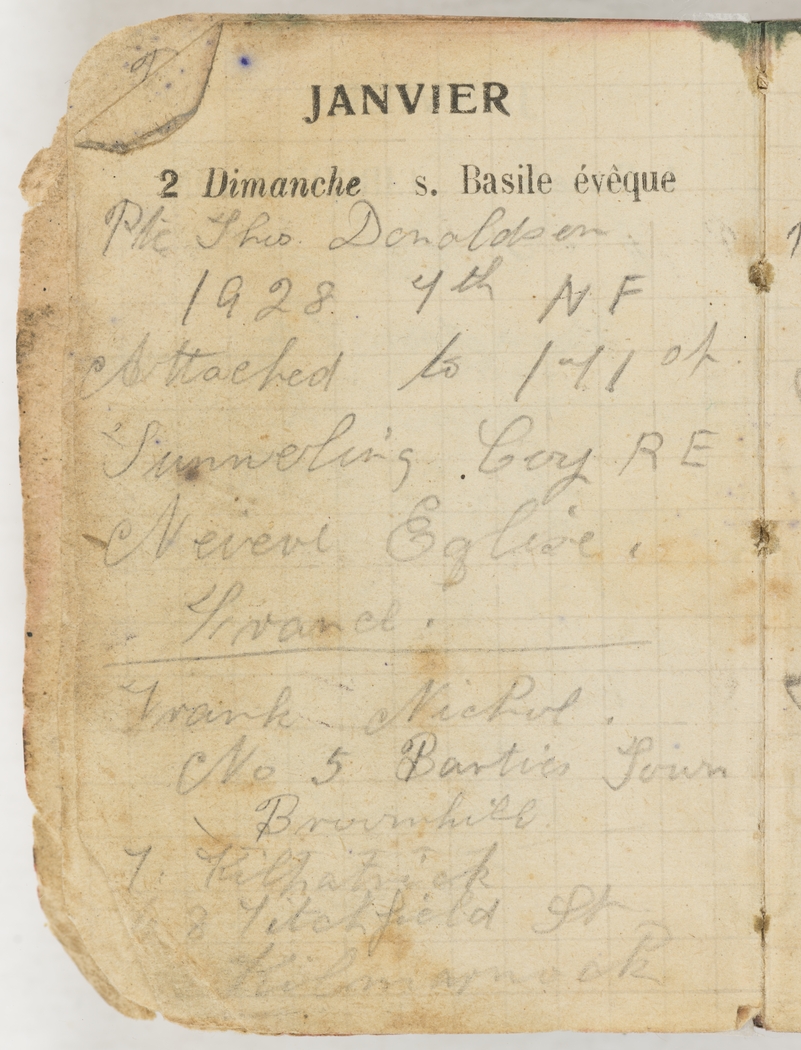 JANVIER
2 Dimanche s. Basile évêque
Pte Thos. Donaldson.
1928 4th N F
Attached to 171 st
Tunneling Coy R E
Neieve Eglise.
France.
Frank Nichol.
No 5 Barties Town
Brownhill.
T. Kilpatrick
68 Titchfield St
Kilmarnock